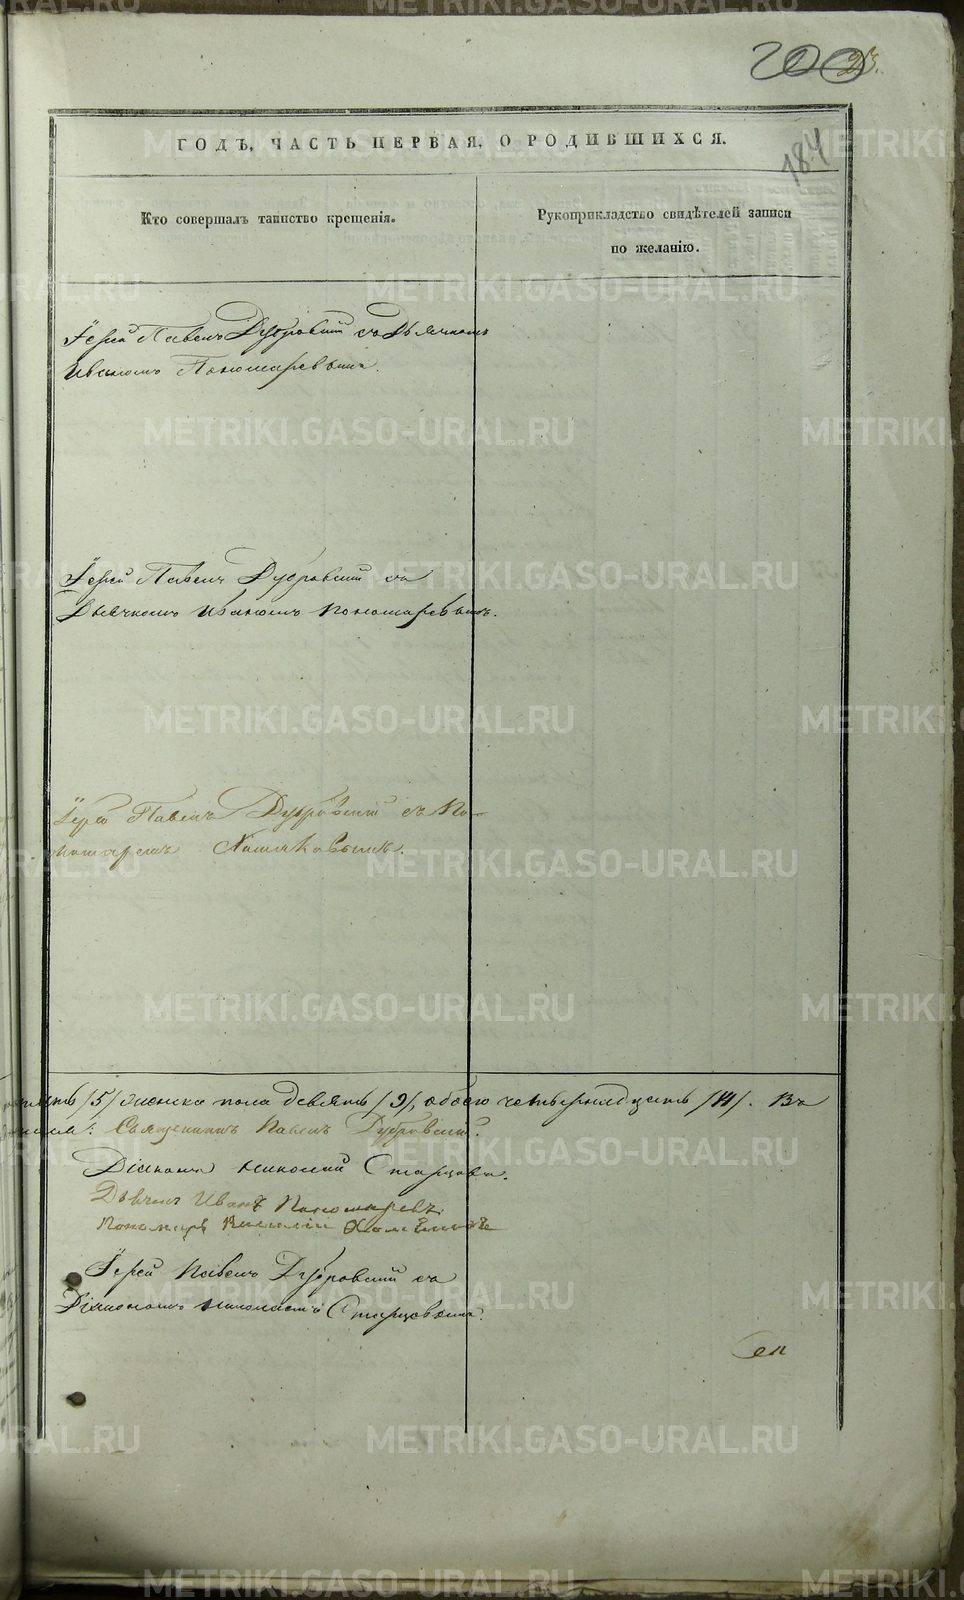 200
ГОДЪ, ЧАСТЬ ПЕРВАЯ, О РОДИВШИХСЯ.
184
Кто совершалъ таинство крещенія.
Рукоприкладство свидѣтелей записи
по желанію.
Іерей Павелъ Дубровинъ съ Дьячкомъ
Иваномъ Пономаревымъ.
Іерей Павелъ Дубровинъ съ
Дьячкомъ Иваномъ Пономаревымъ.
Іерей Павелъ Дубровинъ съ По-
номаремъ Хомяковымъ.
пять /5/ женска пола девять /9/, обоего четырнадцать /14/. Въ
Священникъ Павелъ Дубровинъ.
Діаконъ Николай Старцовъ.
Дьячекъ Иванъ Пономаревъ
Пономарь Василій Хомяковъ
Іерей Павелъ Дубровинъ съ
Діакономъ Николаемъ Старцовымъ.
METRIKI.GASO-URAL.RU